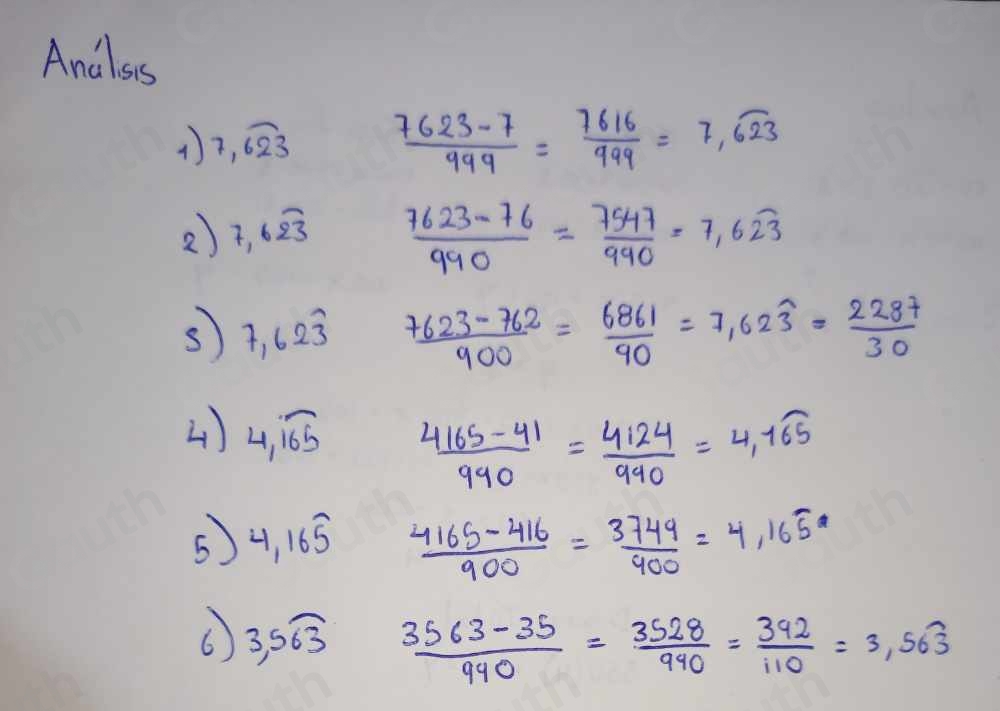 Análisis
1) 7,6͡23 7623-7/999 = 7616/999 = 7,6͡23
2) 7,62͡3 7623-76/990 = 7547/990 = 7,62͡3
3) 7,623̑ 7623-762/900 = 6861/90 = 7,623̑ = 2287/30
4) 4,16͡5 4165-41/990 = 4124/990 = 4,16͡5
5) 4,165̑ 4165-416/900 = 3749/900 = 4,165̑
6) 3,56͡3 3563-35/990 = 3528/990 = 392/110 = 3,56͡3